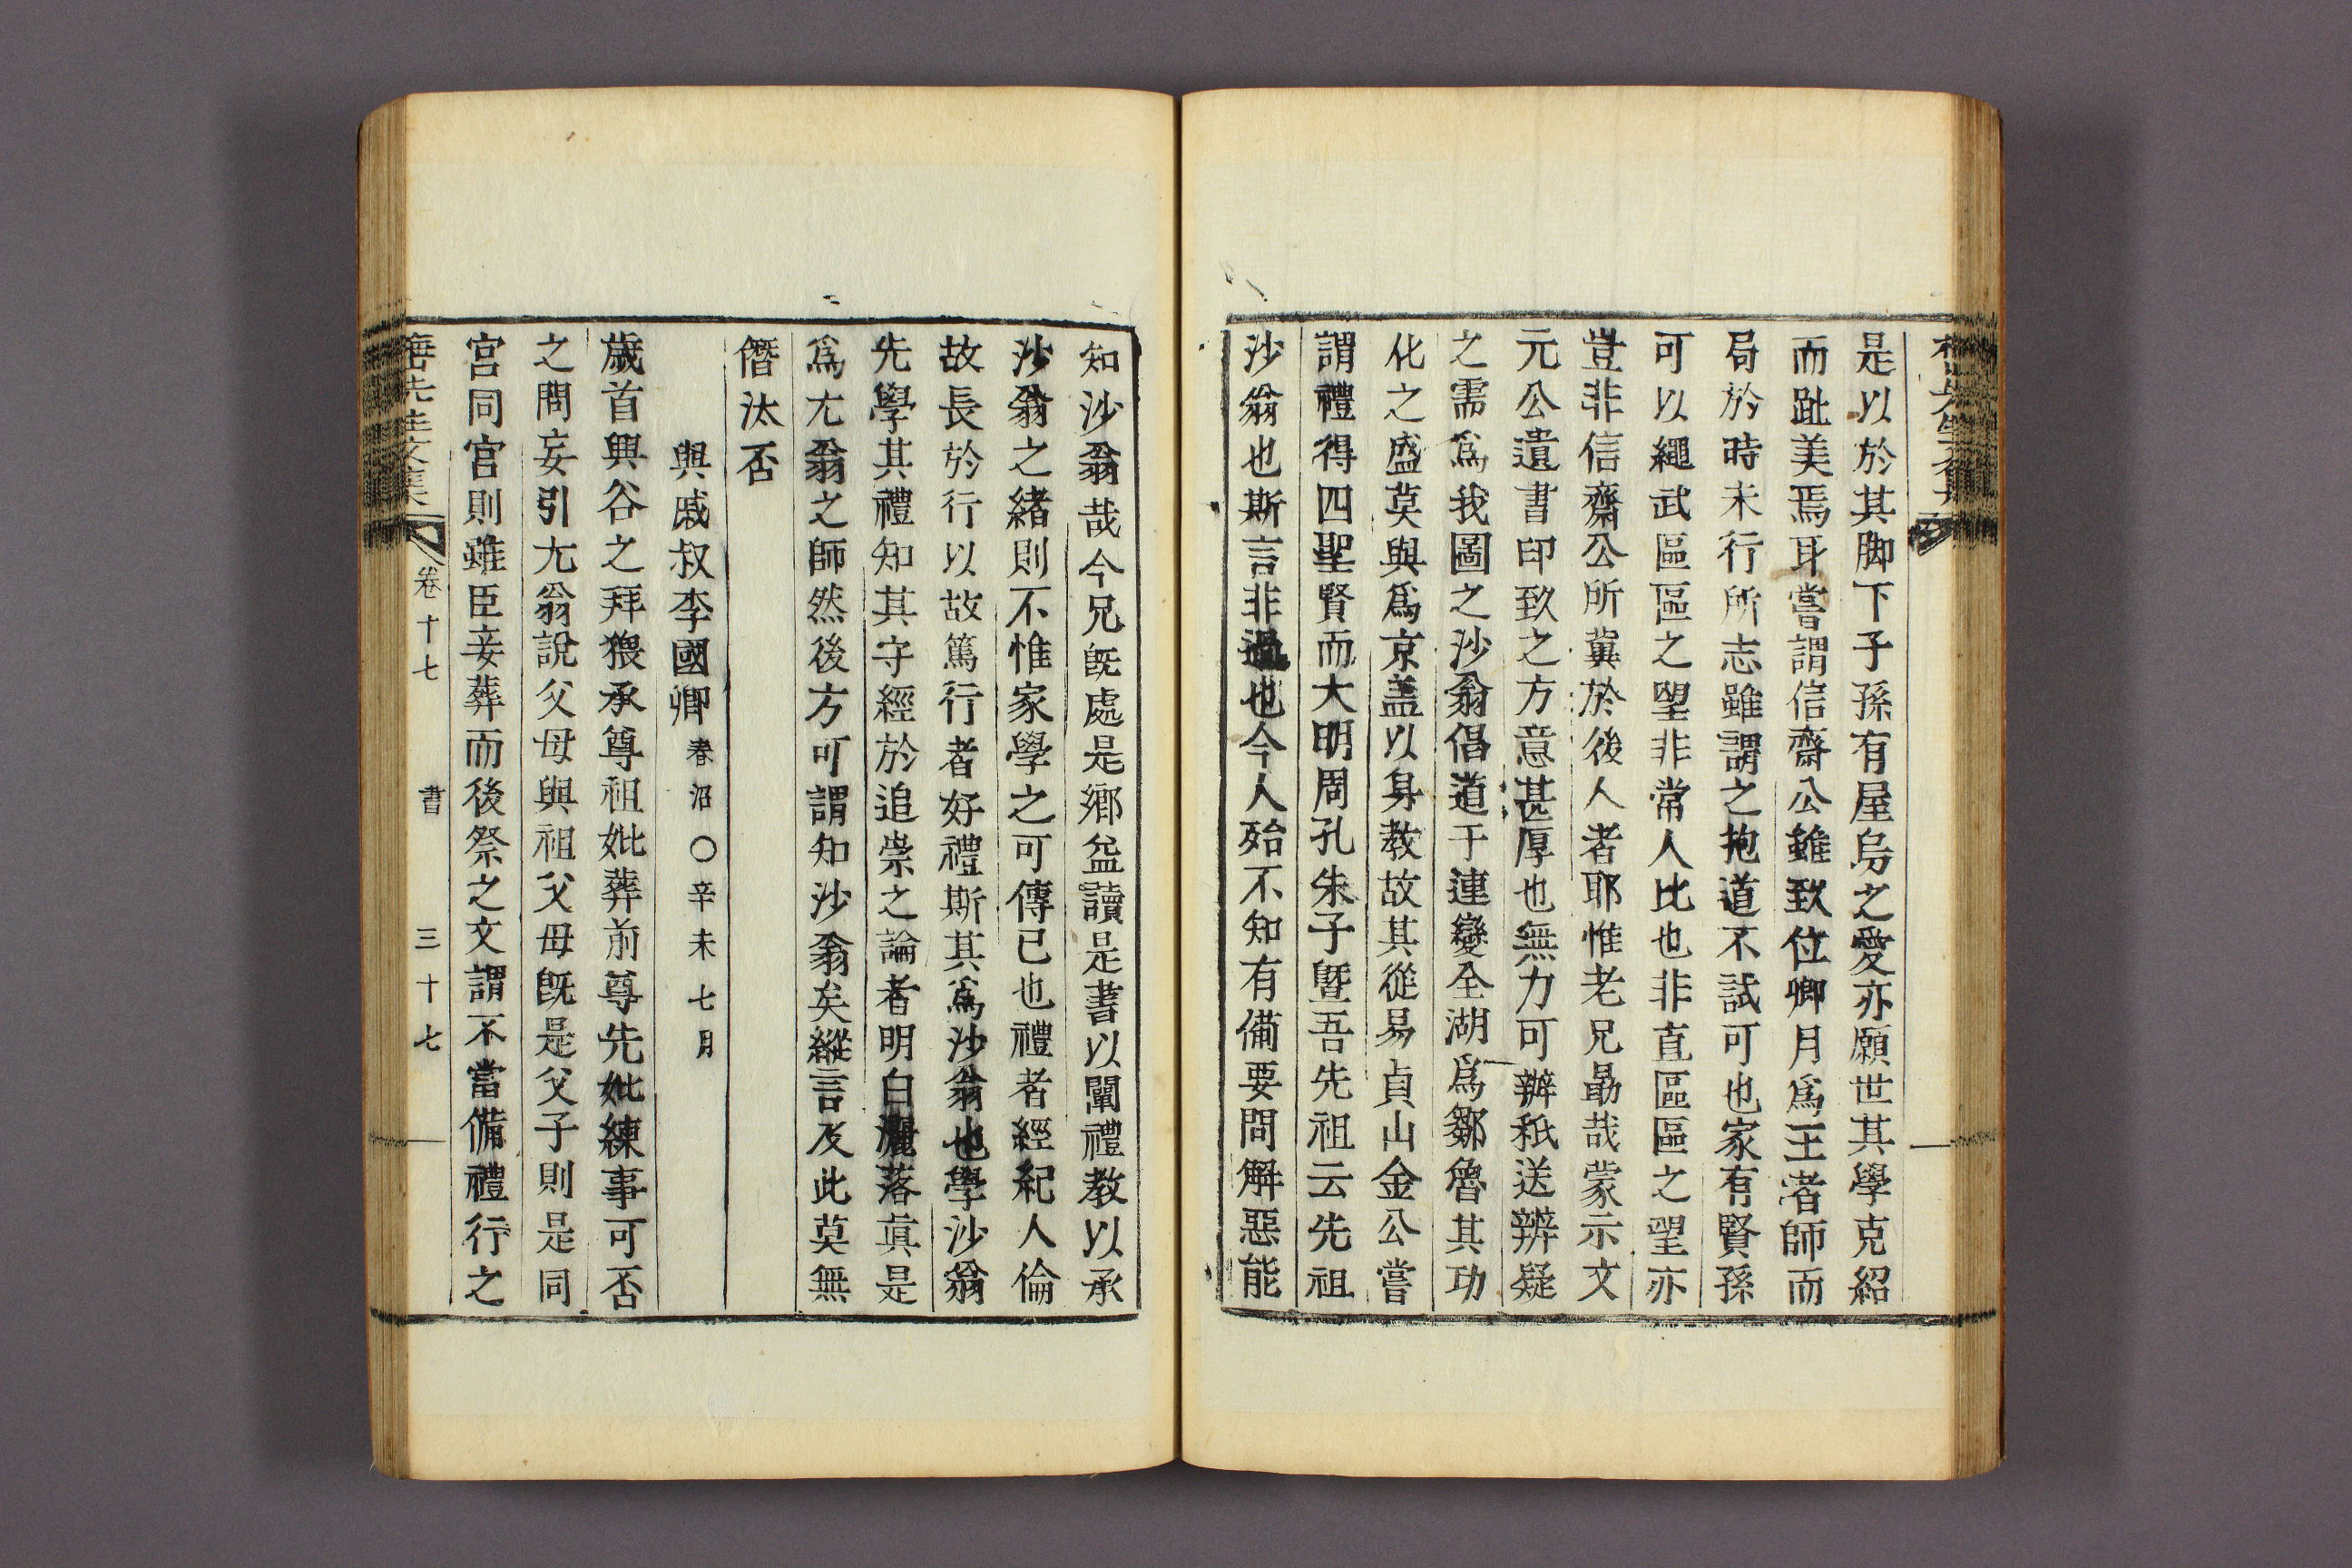 是以於其脚下子孫有屋烏之愛亦願世其學克紹
而趾美焉耳嘗謂信齋公雖致位卿月爲王者師而
局於時未行所志雖謂之抱道不試可也家有賢孫
可以繩武區區之望非常人比也非直區區之望亦
豈非信齋公所冀於後人者耶惟老兄勗哉蒙示文
元公遺書印致之方意甚厚也無力可辦秖送辨疑
之需爲我圖之沙翁倡道于連變全湖爲鄒魯其功
化之盛莫與爲京盖以身教故其從易貞山金公嘗
謂禮得四聖賢而大明周孔朱子曁吾先祖云先祖
沙翁也斯言非過也今人殆不知有備要問解惡能
知沙翁哉今兄旣處是鄉益讀是書以闡禮教以承
沙翁之緖則不惟家學之可傳已也禮者經紀人倫
故長於行以故篤行者好禮斯其爲沙翁也學沙翁
先學其禮知其守經於追崇之論者明白灑落眞是
爲尤翁之師然後方可謂知沙翁矣縱言及此莫無
僭汰否
與戚叔李國卿 春沼○辛未七月
歲首興谷之拜猥承尊祖妣葬前尊先妣練事可否
之問妄引尤翁說父母與祖父母旣是父子則是同
宮同宮則雖臣妾葬而後祭之文謂不當備禮行之
先生文集 卷十七 書 三十七